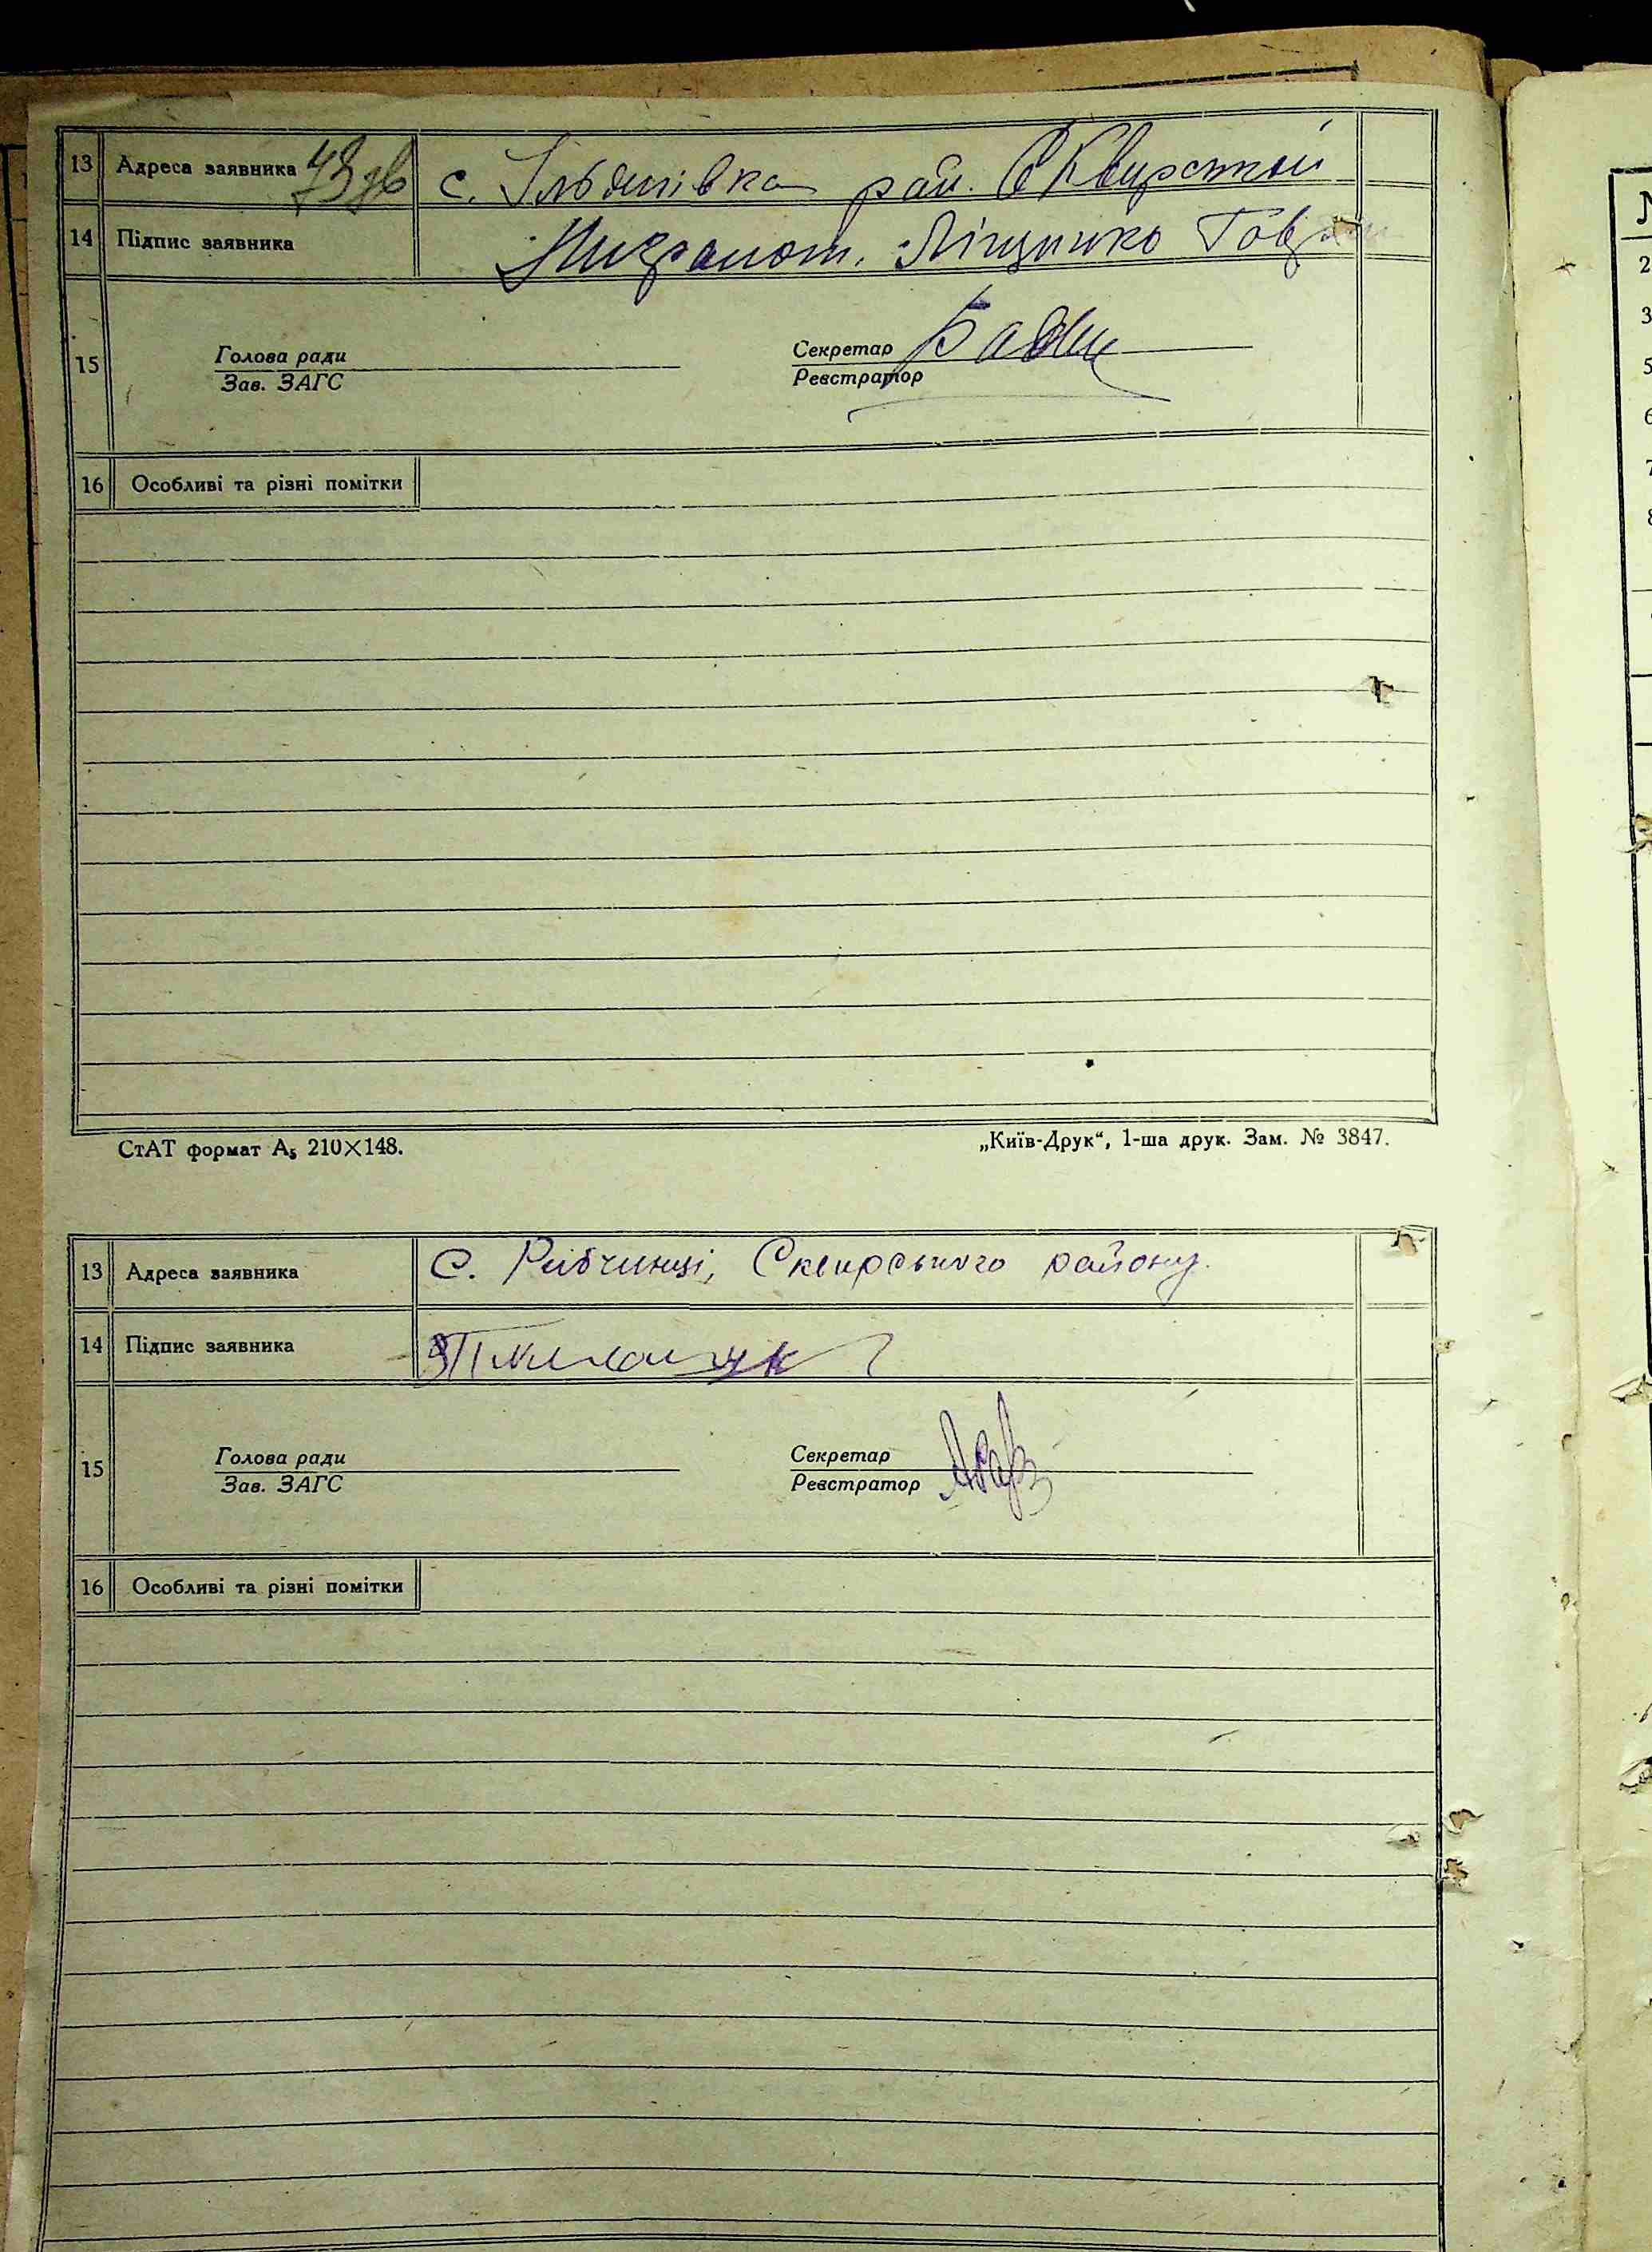 13 Адреса заявника с. рай. Сквирской
14 Підпис заявника Лищинко
15 Голова ради Секретар
Зав. ЗАГС Реєстратор
16 Особливі та різні помітки
СтАТ формат А₅ 210×148. „Київ-Друк“, 1-ша друк. Зам. № 3847.
13 Адреса заявника С. Рибчинці, Сквирського району.
14 Підпис заявника
15 Голова ради Секретар
Зав. ЗАГС Реєстратор
16 Особливі та різні помітки
2
3
5
6
7
8